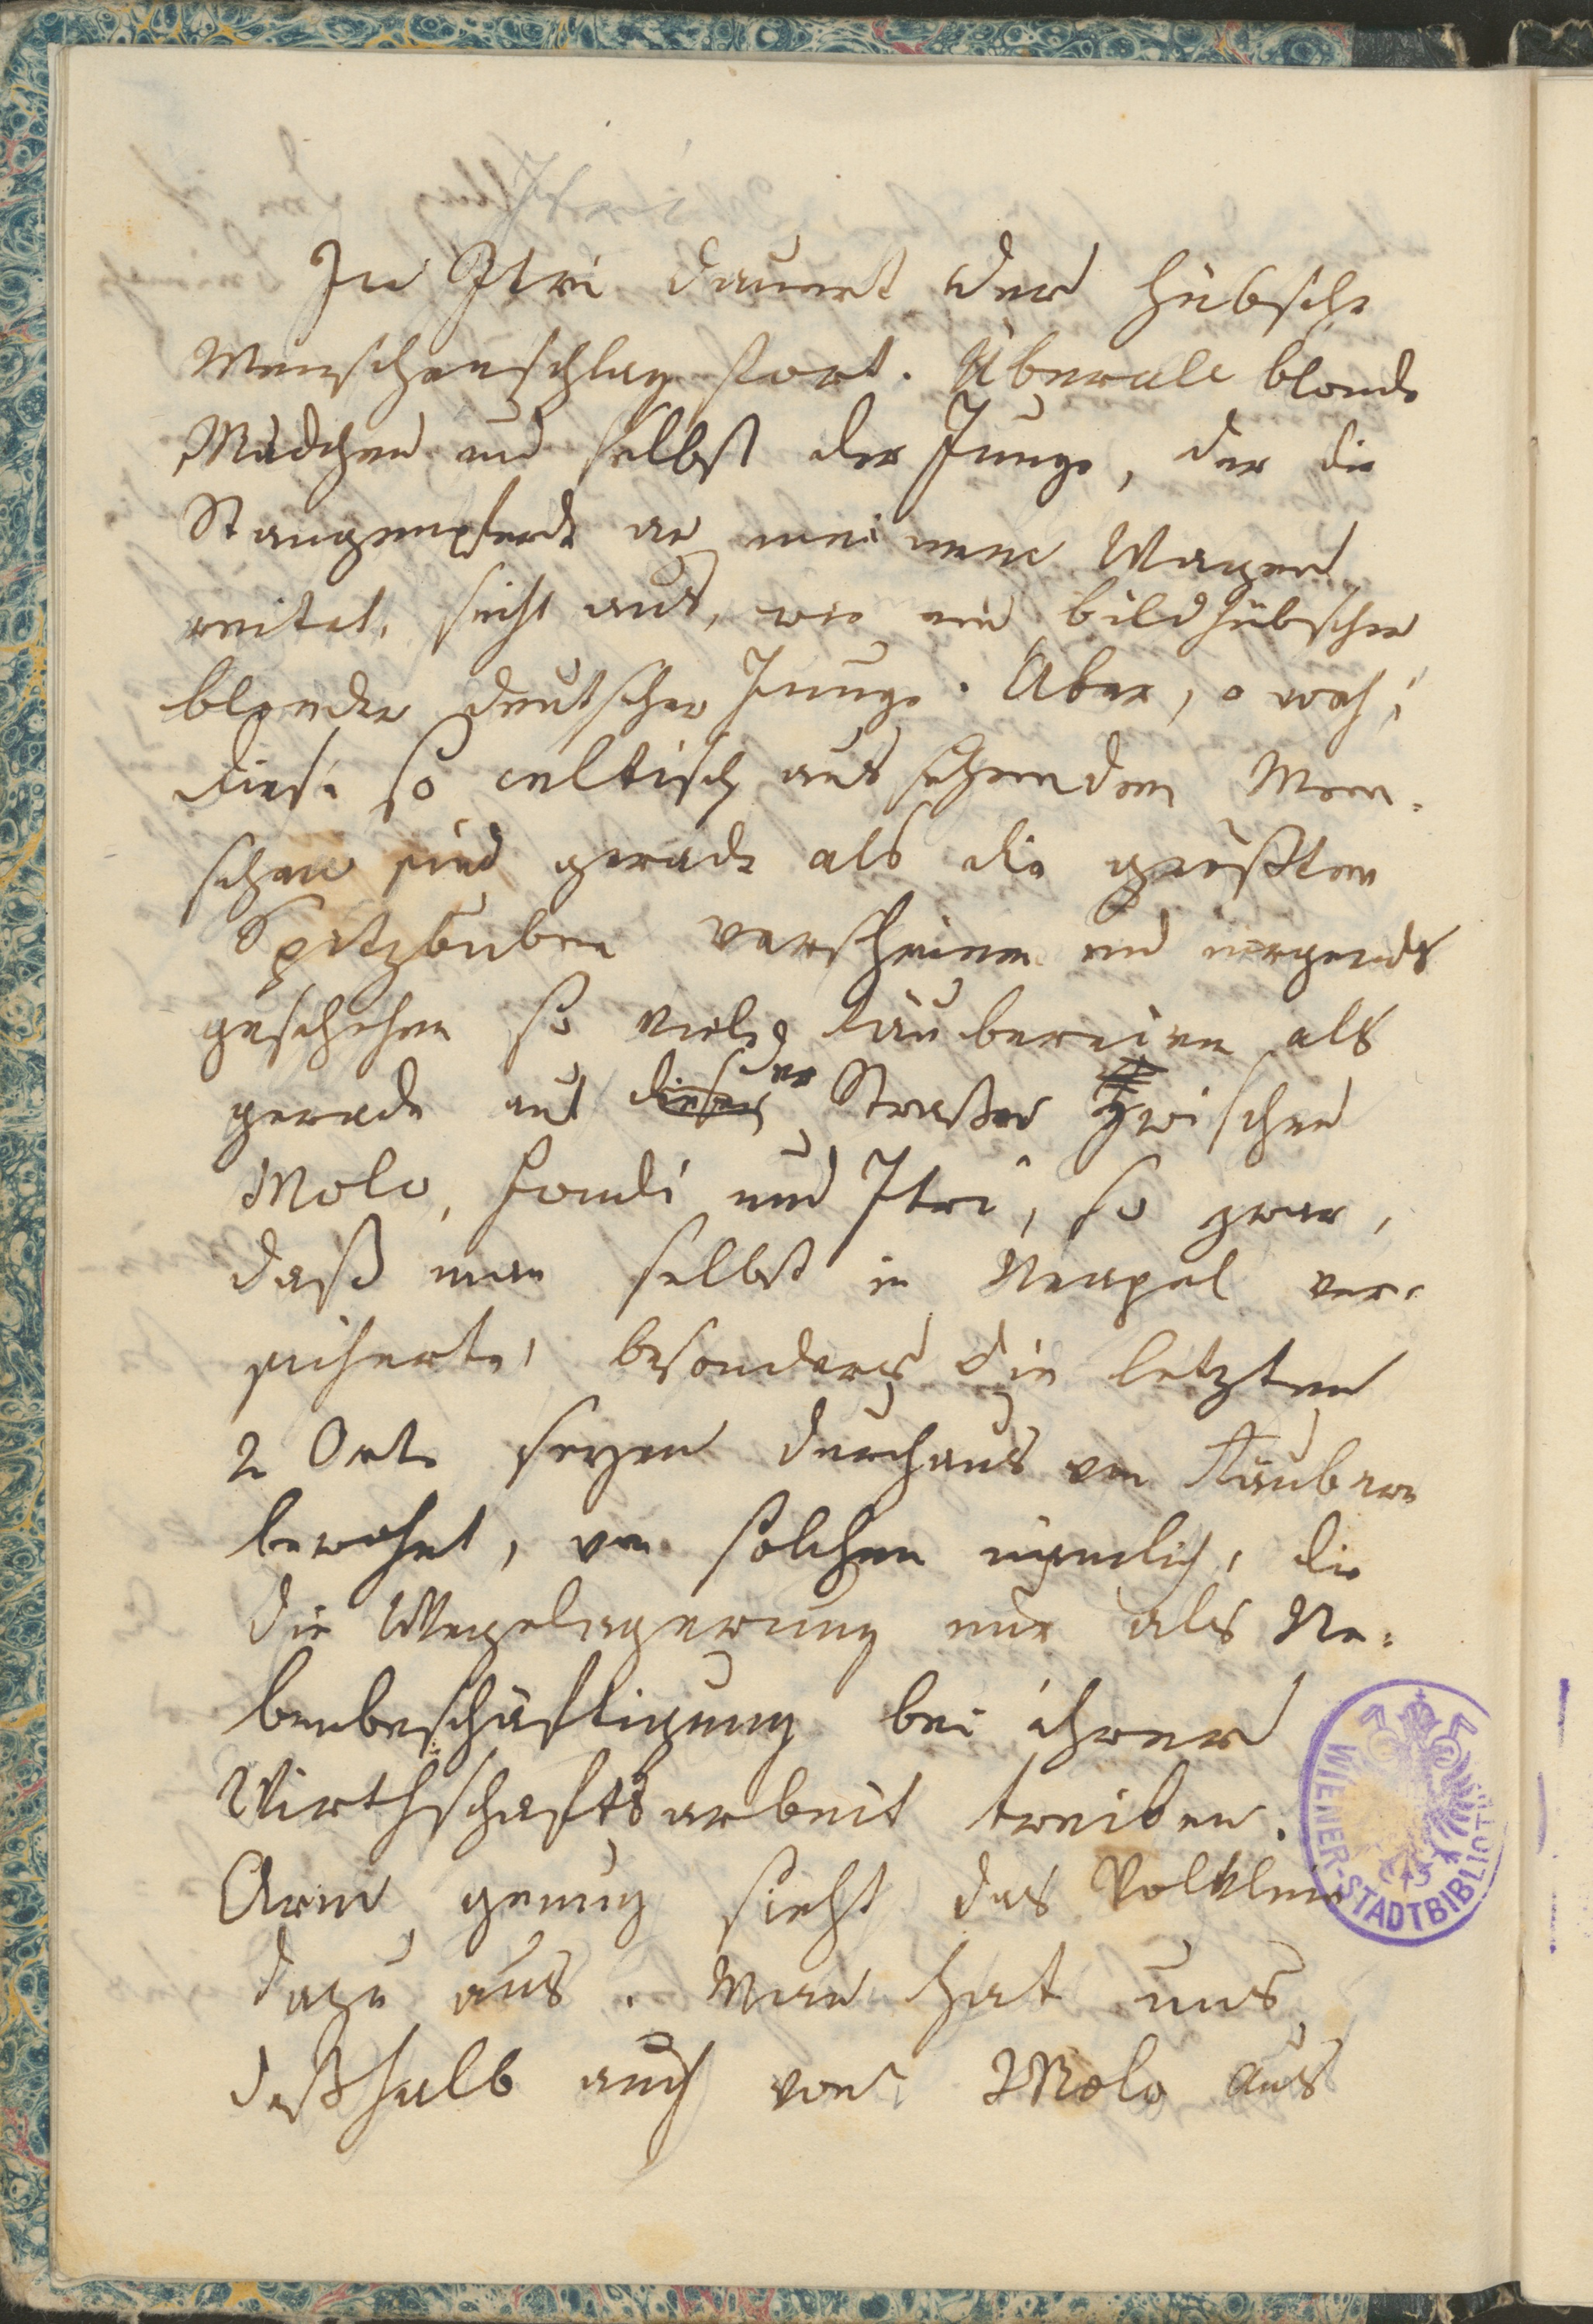 Itri
In Itri dauert der hübsche
Menschenschlag fort. Überall blonde
Mädchen und selbst der Junge, der die
Stangenpferde an meinem Wagen
reitet, sieht aus, wie ein bildhübscher
blonder deutscher Junge. Aber, o weh!
diese so celtisch aussehenden Men-
schen sind gerade als die größten
Spitzbuben verschrieen und nirgends
geschehen so viele Räubereien als
gerade auf dieser der Straße zwischen
Molo, Fondi und Itri, so zwar,
daß man selbst in Neapel ver-
sicherte, besonders die letzten
2 Orte seyen durchaus von Räubern
bewohnt, von solchen nämlich, die
die Wegelagerung nur als Ne-
benbeschäftigung bei ihrer
Wirthschaftsarbeit treiben.
Arm genug sieht das Völklein
dazu aus. Man hat uns
deßhalb auch von Molo aus
WIENER-STADTBIBLIOTHEK